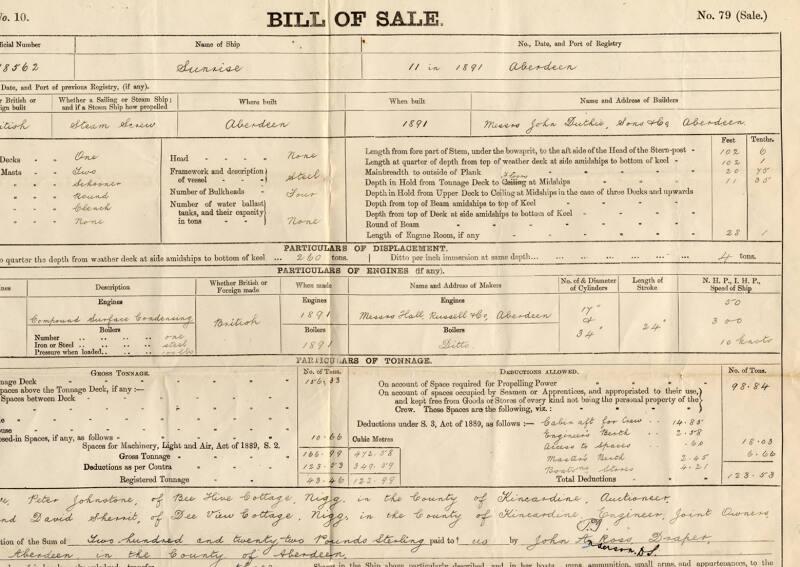 No. 10. BILL OF SALE. No. 79 (Sale.)
Official Number Name of Ship No., Date, and Port of Registry
8562 Sunrise 11 in 1891 Aberdeen
Date, and Port of previous Registry, (if any).
British or Whether a Sailing or Steam Ship; Where built When built Name and Address of Builders
built and if a Steam Ship how propelled
British Steam Screw Aberdeen 1891 Messrs John Duthie, Sons & Co, Aberdeen.
Feet Tenths.
Decks One
Masts Two
Schooner
Round
Clench
None
Head None
Framework and description of vessel Steel
Number of Bulkheads Four
Number of water ballast tanks, and their capacity in tons None
Length from fore part of Stem, under the bowsprit, to the aft side of the Head of the Stern-post 102 6
Length at quarter of depth from top of weather deck at side amidships to bottom of keel 102 1
Mainbreadth to outside of Plank 20 75
Depth in Hold from Tonnage Deck to Ceiling at Midships 11 35
Depth in Hold from Upper Deck to Ceiling at Midships in the case of three Decks and upwards
Depth from top of Beam amidships to top of Keel
Depth from top of Deck at side amidships to bottom of Keel
Round of Beam
Length of Engine Room, if any 28 1
PARTICULARS OF DISPLACEMENT.
to quarter the depth from weather deck at side amidships to bottom of keel ... 260 tons. Ditto per inch immersion at same depth... 4 tons.
PARTICULARS OF ENGINES (if any).
Description Whether British or Foreign made When made Name and Address of Makers No. of & Diameter of Cylinders Length of Stroke N. H. P., I. H. P., Speed of Ship
Engines Engines Engines 50
Compound Surface Condensing British 1891 Messrs Hall, Russell & Co, Aberdeen 17" & 34" 24" 300
Boilers Boilers Boilers
Number one
Iron or Steel steel 1891 Ditto 10 knots
Pressure when loaded
PARTICULARS OF TONNAGE.
GROSS TONNAGE. No. of Tons. DEDUCTIONS ALLOWED. No. of Tons.
Tonnage Deck 156.33
Spaces above the Tonnage Deck, if any :—
Spaces between Deck
Closed-in Spaces, if any, as follows 10.66
Spaces for Machinery, Light and Air, Act of 1889, S. 2. Cubic Metres
Gross Tonnage 166.99 472.58
Deductions as per Contra 123.53 349.59
Registered Tonnage 43.46 122.99
On account of Space required for Propelling Power 98.84
On account of spaces occupied by Seamen or Apprentices, and appropriated to their use,
and kept free from Goods or Stores of every kind not being the personal property of the
Crew. These Spaces are the following, viz. :
Deductions under S. 3, Act of 1889, as follows :— Cabin aft for Crew 14.85
Engineers Berth 2.58
Access to Spaces .60 18.03
Master's Berth 2.45 6.66
Boatswns Stores 4.21
Total Deductions 123.53
Peter Johnstone, of Bee Hive Cottage, Nigg, in the County of Kincardine, Auctioneer
and David Sherrit, of Dee View Cottage, Nigg, in the County of Kincardine, Engineer, Joint Owners
of the Sum of Two hundred and twenty-two Pounds Sterling paid to us by John A. Ross, Draper,
Aberdeen in the County of Aberdeen,